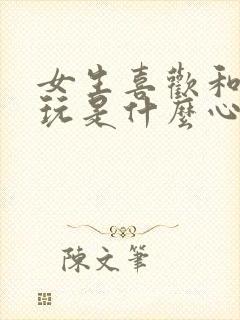 女生喜歡和
玩是什麼心
陳文筆